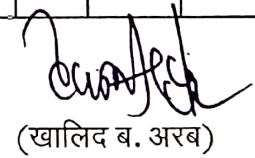 (खालिद ब. अरब)